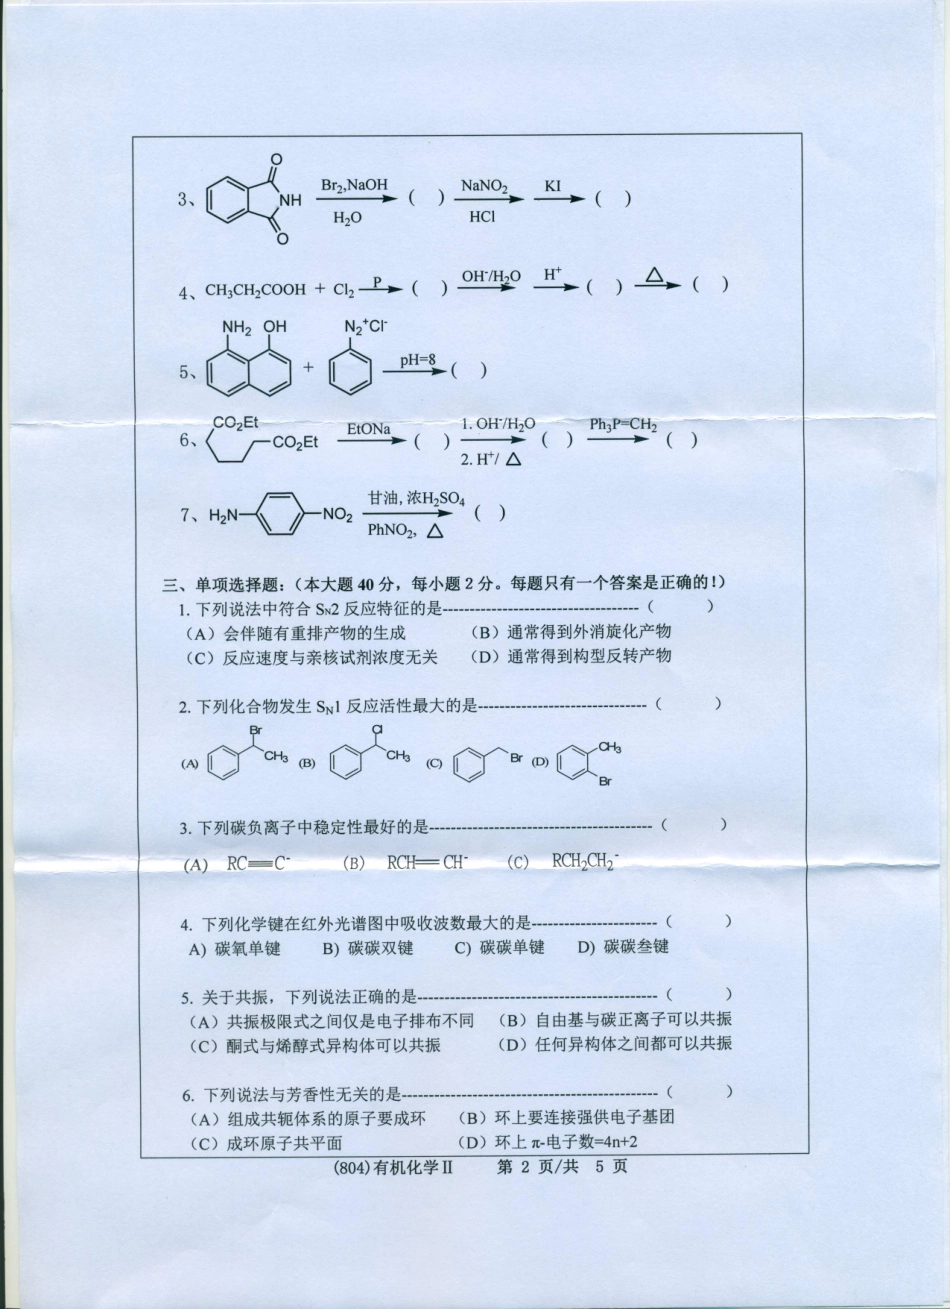 3、 O NH O Br₂,NaOH H₂O ( ) NaNO₂ HCl KI ( )
4、CH₃CH₂COOH + Cl₂ P ( ) OH⁻/H₂O H⁺ ( ) △ ( )
NH₂ OH N₂⁺Cl⁻
5、 + pH=8 ( )
6、 CO₂Et CO₂Et EtONa ( ) 1. OH⁻/H₂O 2. H⁺/ △ ( ) Ph₃P=CH₂ ( )
7、H₂N NO₂ 甘油, 浓H₂SO₄ PhNO₂, △ ( )
三、单项选择题:(本大题 40 分，每小题 2 分。每题只有一个答案是正确的!)
1. 下列说法中符合 SN2 反应特征的是------------------------------------( )
(A) 会伴随有重排产物的生成 (B) 通常得到外消旋化产物
(C) 反应速度与亲核试剂浓度无关 (D) 通常得到构型反转产物
2. 下列化合物发生 SN1 反应活性最大的是-------------------------------( )
(A) Br CH₃ (B) Cl CH₃ (C) Br (D) CH₃ Br
3. 下列碳负离子中稳定性最好的是------------------------------------------( )
(A) RC≡C⁻ (B) RCH=CH⁻ (C) RCH₂CH₂⁻
4. 下列化学键在红外光谱图中吸收波数最大的是-----------------------( )
A) 碳氧单键 B) 碳碳双键 C) 碳碳单键 D) 碳碳叁键
5. 关于共振，下列说法正确的是--------------------------------------------( )
(A) 共振极限式之间仅是电子排布不同 (B) 自由基与碳正离子可以共振
(C) 酮式与烯醇式异构体可以共振 (D) 任何异构体之间都可以共振
6. 下列说法与芳香性无关的是-----------------------------------------------( )
(A) 组成共轭体系的原子要成环 (B) 环上要连接强供电子基团
(C) 成环原子共平面 (D) 环上 π-电子数=4n+2
(804)有机化学Ⅱ 第 2 页/共 5 页